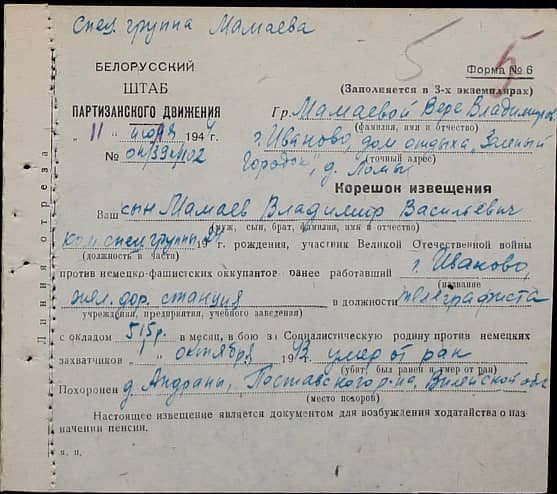 Спец. группа Мамаева
5
5
БЕЛОРУССКИЙ
ШТАБ
ПАРТИЗАНСКОГО ДВИЖЕНИЯ
"11" июля 1944
№
Форма № 6
(Заполняется в 3-х экземплярах)
Гр. Мамаевой Вере Владимиров.
(фамилия, имя и отчество)
г. Иваново, дом отдыха, Зеленый
(точный адрес)
Городок", д. Ломы
Корешок извещения
Ваш сын Мамаев Владимир Васильевич
(муж, сын, брат, фамилия, имя и отчество)
ком. спецгруппы 19 г. рождения, участник Великой Отечественной войны
(должность в части)
против немецко-фашистских оккупантов ранее работавший г. Иваново,
(название
жел. дор. станция в должности телеграфиста
учреждения, предприятия, учебного заведения)
с окладом 515 р. в месяц, в бою за Социалистическую родину против немецких
захватчиков " 1 " октября 1943 умер от ран
(убит, был ранен и умер от ран)
Похоронен д. Андраны, Поставского р-на, Вилейской обл
(место похорой)
Настоящее извещение является документом для возбуждения ходатайства о наз
начении пенсии.
м. п.
Линия отреза